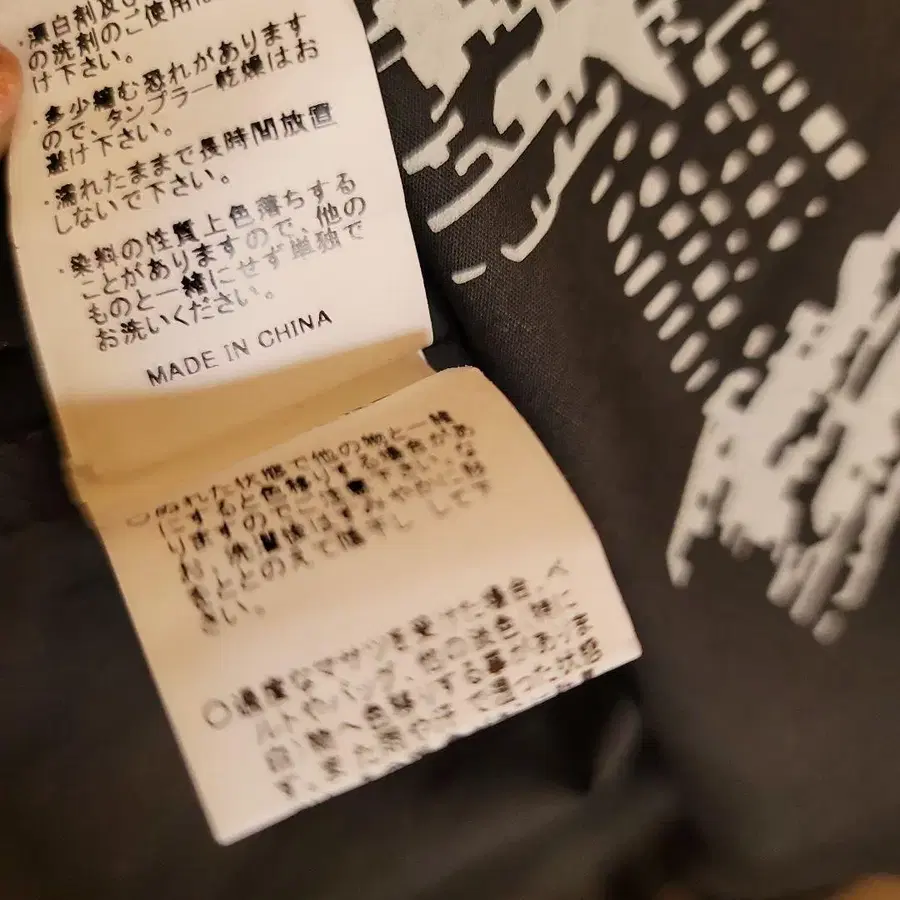 ・漂白剤及び
の洗剤のご使用は
け下さい。
・多少縮む恐れがあります
ので、タンブラー乾燥はお
避け下さい。
・濡れたままで長時間放置
しないで下さい。
・染料の性質上色落ちする
ことがありますので、他の
ものと一緒にせず単独で
お洗いください。
MADE IN CHINA
○ぬれた状態で他の物と一緒
にすると色移りする場合があ
りますのでご注意下さい。な
お、洗濯後はすみやかに形
をととのえて陰干しして下
さい。
○過度なマサツを受けた場合、ベ
ルトやバッグ、他の淡色、特に
白い物へ色移りする事がありま
す。また雨や汗で湿った状態